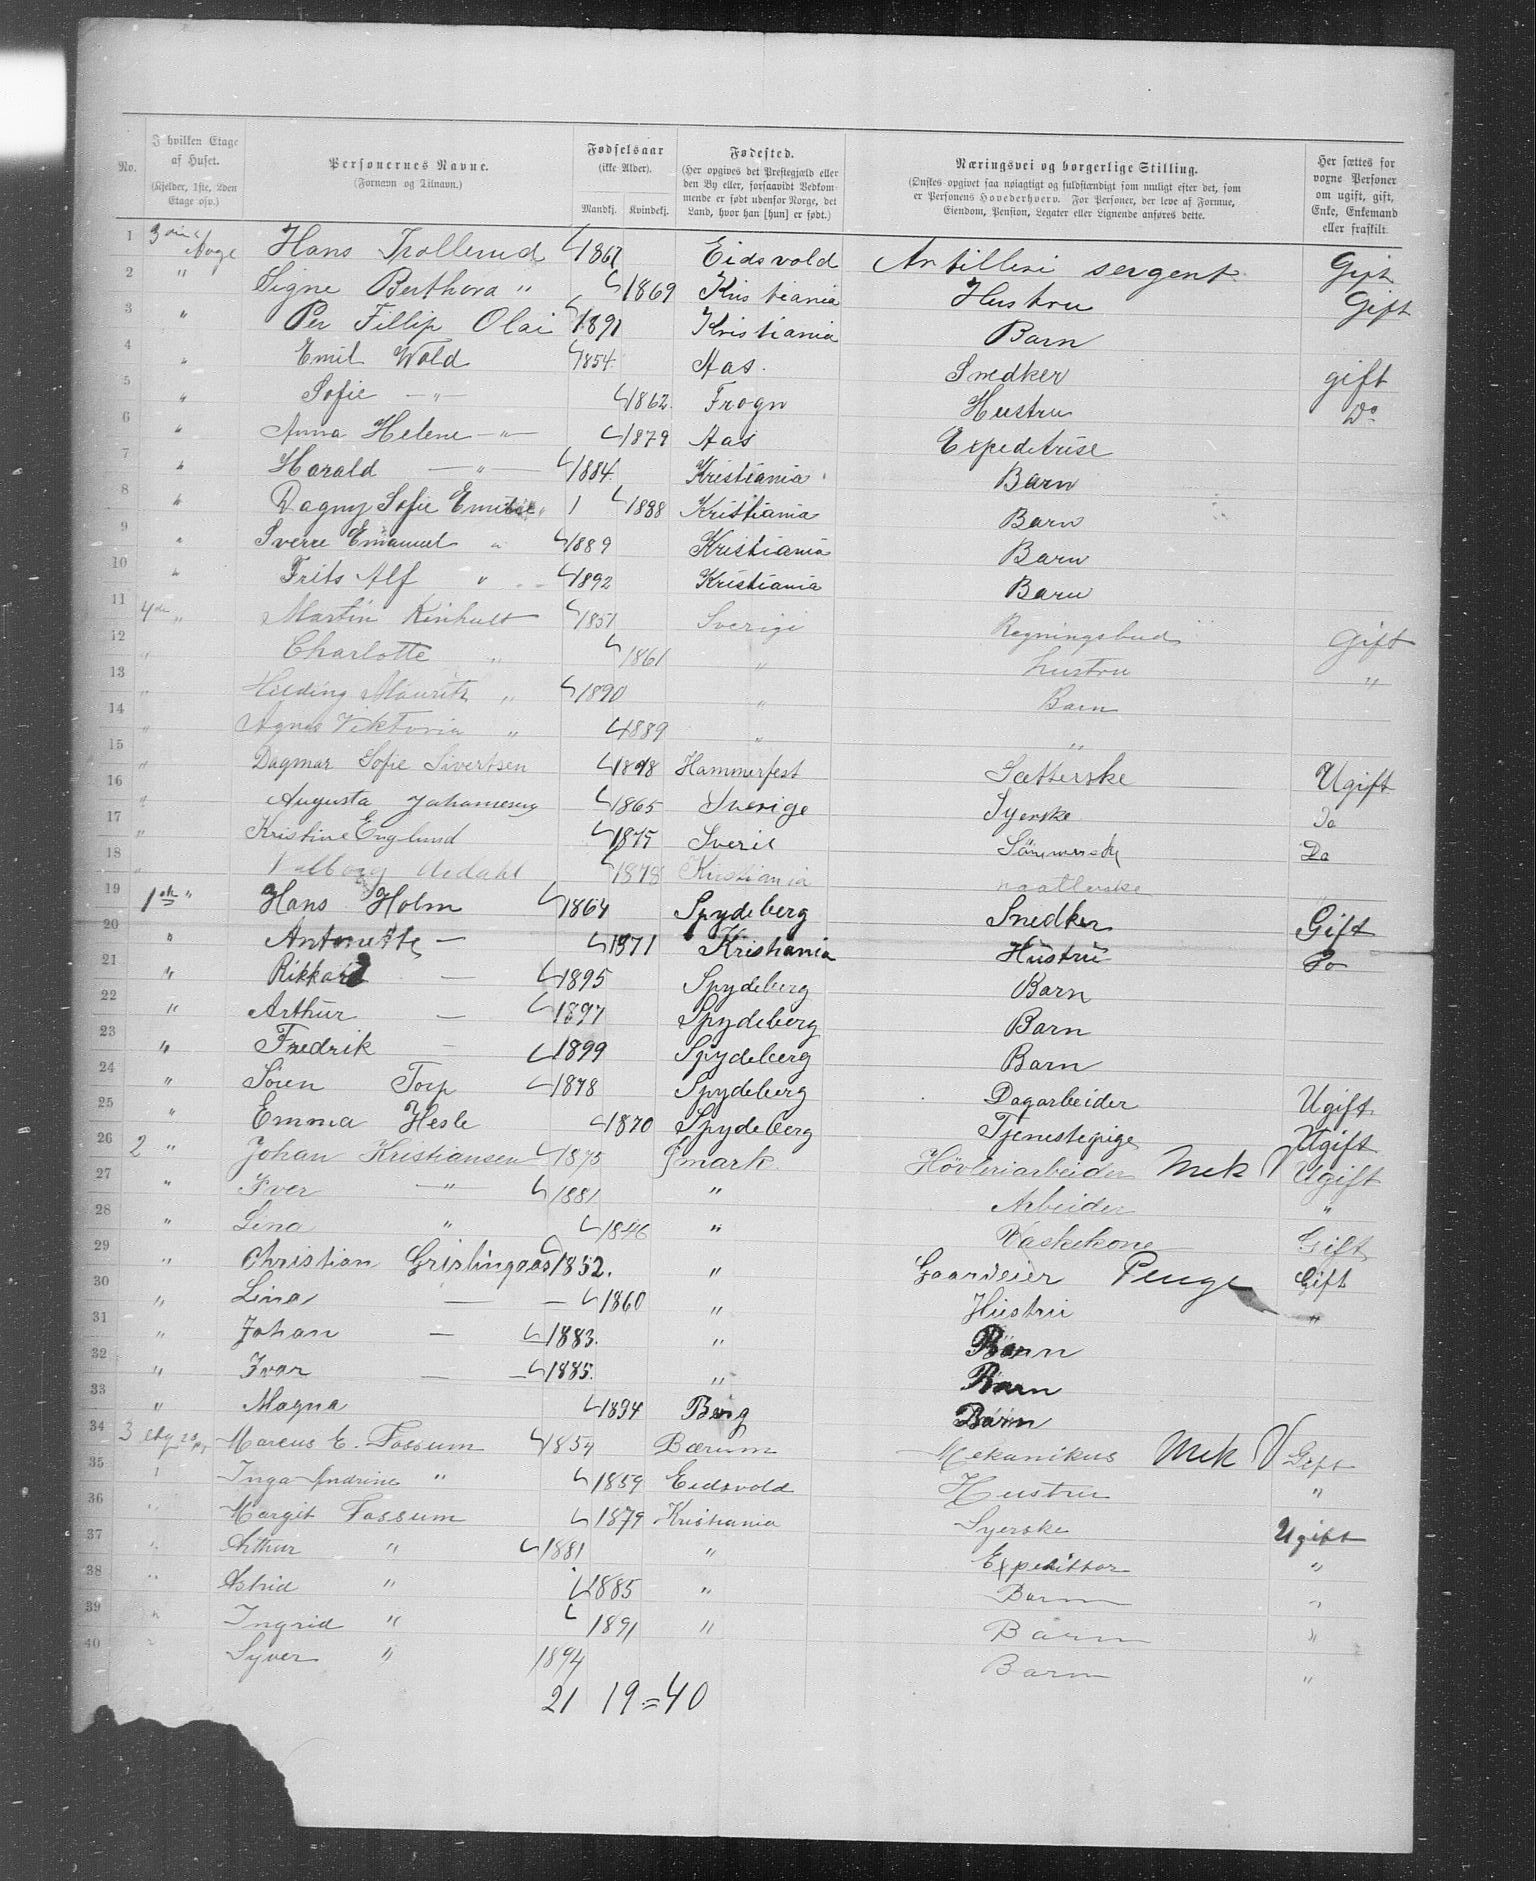 No. | I hvilken Etage af Huset. (Kjelder, 1ste, 2den Etage osv.) | Personernes Navne. (Fornavn og Tilnavn.) | Fødselsaar (ikke Alder). Mandkj. Kvindekj. | Fødested. (Her opgives det Prestegjæld eller den By eller, forsaavidt Vedkommende er født udenfor Norge, det Land, hvor han [hun] er født.) | Næringsvei og borgerlige Stilling. (Ønskes opgivet saa nøiagtigt og fuldstændigt som muligt efter det, som er Personens Hovederhverv. For Personer, der leve af Formue, Eiendom, Pension, Legater eller Lignende anføres dette. | Her sættes for voxne Personer om ugift, gift, Enke, Enkemand eller fraskilt.
1 3die Hans Trollerud 1861 Eidsvold Artilleri sergent Gift
2 " Signe Berthora " 1869 Kristiania Hustru Gift
3 " Per Fillip Olai 1891 Kristiania Barn
4 " Emil Wold 1854 Aas. Snedker gift
5 " Sofie — " — 1862 Frogn Hustru Do
6 " Anna Helene — " — 1879 Aas Expeditrise
7 " Harald — " — 1884 Kristiania Barn
8 " Dagny Sofie Emilie " 1 1888 Kristiania Barn
9 " Sverre Emanuel " 1889 Kristiania Barn
10 " Frits Alf " 1892 Kristiania Barn
11 4de " Martin Kinhult 1851 Sverige Regningsbud Gift
12 " Charlotte " 1861 " hustru "
13 " Hilding Mauritz " 1890 " Barn
14 " Agnes Viktoria " 1889 " "
15 " Dagmar Sofie Sivertsen 1878 Hammerfest Sætterske Ugift
16 " Augusta 1865 Sverige Syerske Do
17 " Kristine Englund 1875 Sverie Do
18 " Valborg 1878 Kristiania
19 1ste " Hans Holm 1864 Spydeberg Snedker Gift
20 " Antonette — 1871 Kristiania Hustru Do
21 " Rikkard — 1895 Spydeberg Barn
22 " Arthur — 1897 Spydeberg Barn
23 " Fredrik — 1899 Spydeberg Barn
24 " Søren Torp 1878 Spydeberg Dagarbeider Ugift
25 " Emma Hesle 1870 Spydeberg Tjenestepige Ugift
26 2 " Johan Kristiansen 1875 Høvleriarbeider Mek V Ugift
27 " Iver — " 1881 " Arbeider "
28 " Lina " 1846 " Vaskekone Gift
29 " Christian Grislingaas 1852. " Gaardeier Penge Gift
30 " Lina — — 1860 " Hustru "
31 " Johan — 1883. " Barn
32 " Ivar — — 1885. " Barn
33 " Magna 1894 Berg Barn
34 3 Marcus E. Fossum 1854 Bærum Mekanikus Mek V Gift
35 Inga Andrine " 1859 Eidsvold Hustru "
36 " Margit Fossum 1879 Kristiania Syerske Ugift
37 " Arthur " 1881 " Expeditør "
38 " Astrid " 1885 " Barn "
39 " Ingrid " 1891 " Barn "
40 " Syver " 1894 Barn "
21 19 = 40